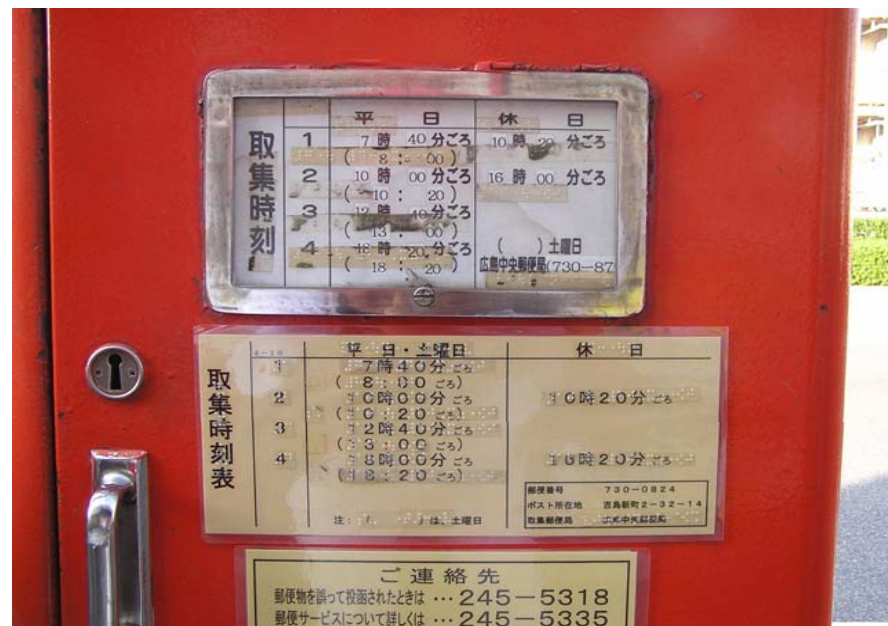 取集時刻
平日 休日
1 7時40分ごろ 10時20分ごろ
(8:00)
2 10時00分ごろ 16時00分ごろ
(10:20)
3 12時40分ごろ
(13:00)
4 18時20分ごろ ( )土曜日
(18:20) 広島中央郵便局(730-87
取集時刻表
平日・土曜日 休日
1 7時40分ごろ
(8:00ごろ)
2 10時00分ごろ 10時20分ごろ
(10:20ごろ)
3 12時40分ごろ
(13:00ごろ)
4 18時00分ごろ 16時20分ごろ
(18:20ごろ)
郵便番号 730-0824
ポスト所在地 吉島新町2-32-14
注:( )は、土曜日 取集郵便局 広島中央郵便局
ご連絡先
郵便物を誤って投函されたときは…245-5318
郵便サービスについて詳しくは…245-5335